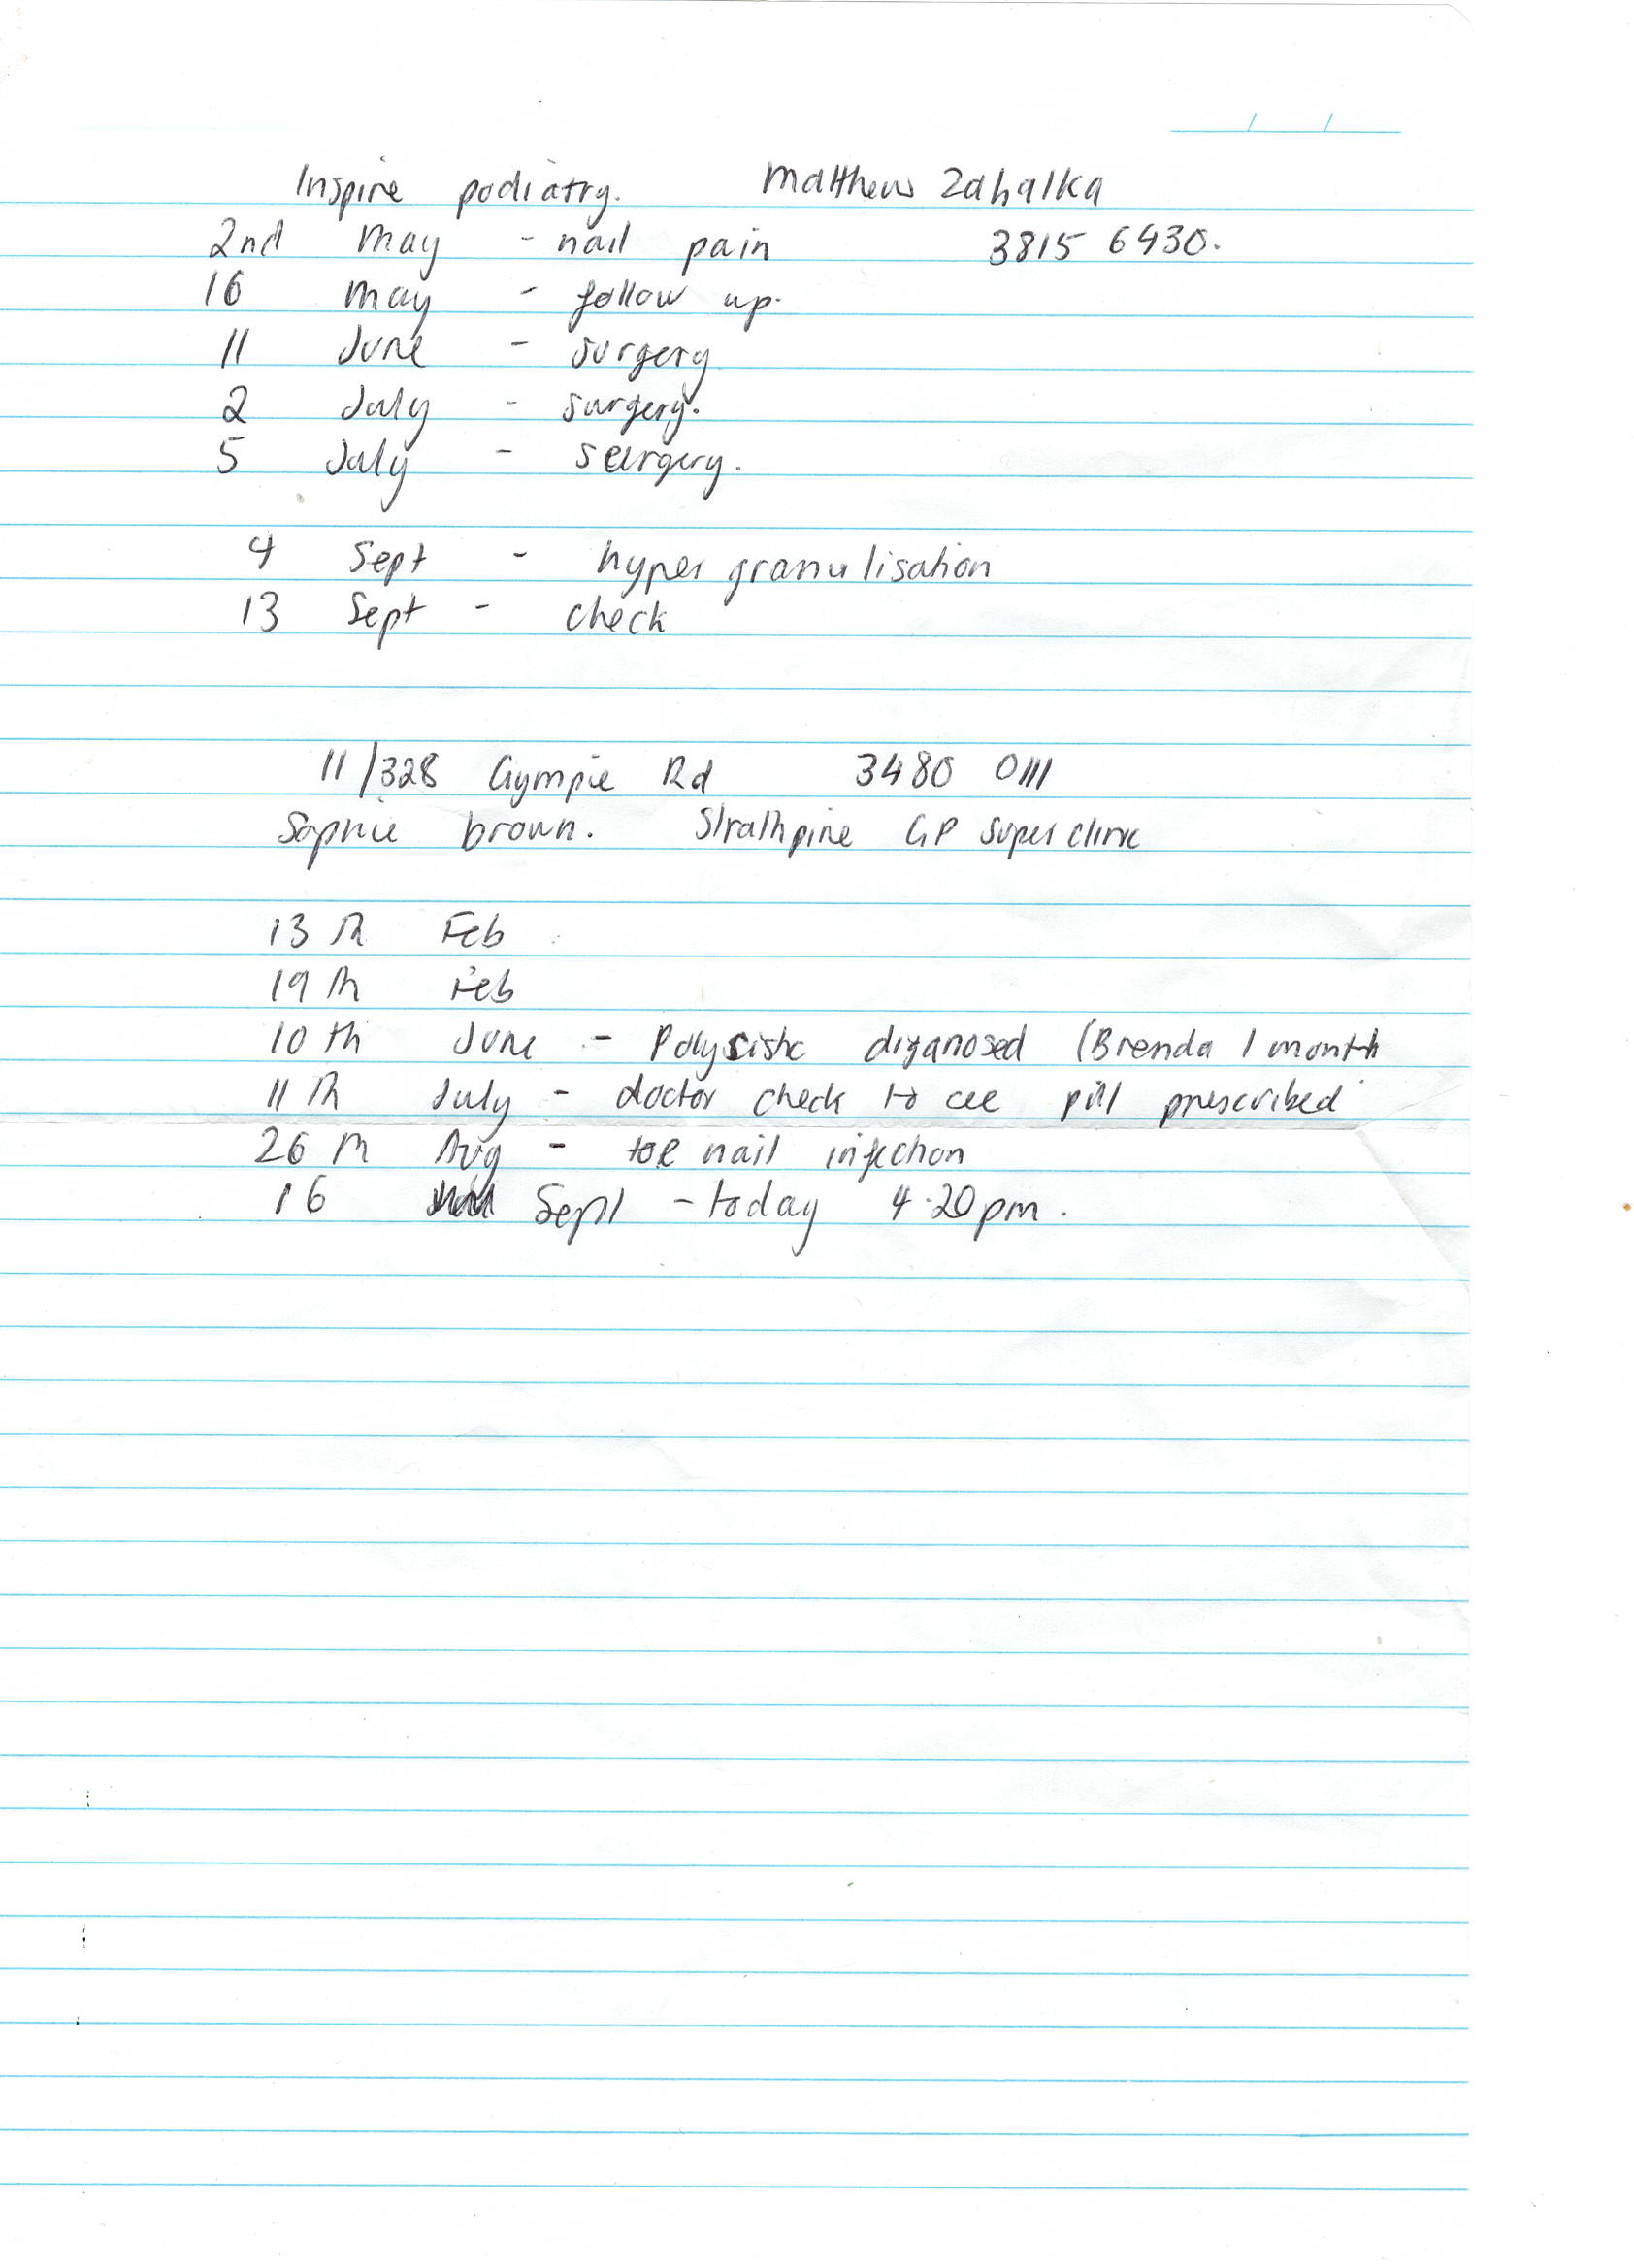 Inspire podiatry. Matthew Zahalka
2nd May - nail pain 3815 6430.
16 May - follow up.
11 June - surgery
2 July - surgery.
5 July - surgery.
4 Sept - hyper granulisation
13 Sept - check
11/328 Gympie Rd 3480 0111
Sophie brown. Strathpine GP super clinic
13th Feb
19th Feb
10th June - Polycistic diganosed (Brenda 1 month
11th July - doctor check to cee pill prescribed
26th Aug - toe nail infection
16 Sept - today 4.20pm.